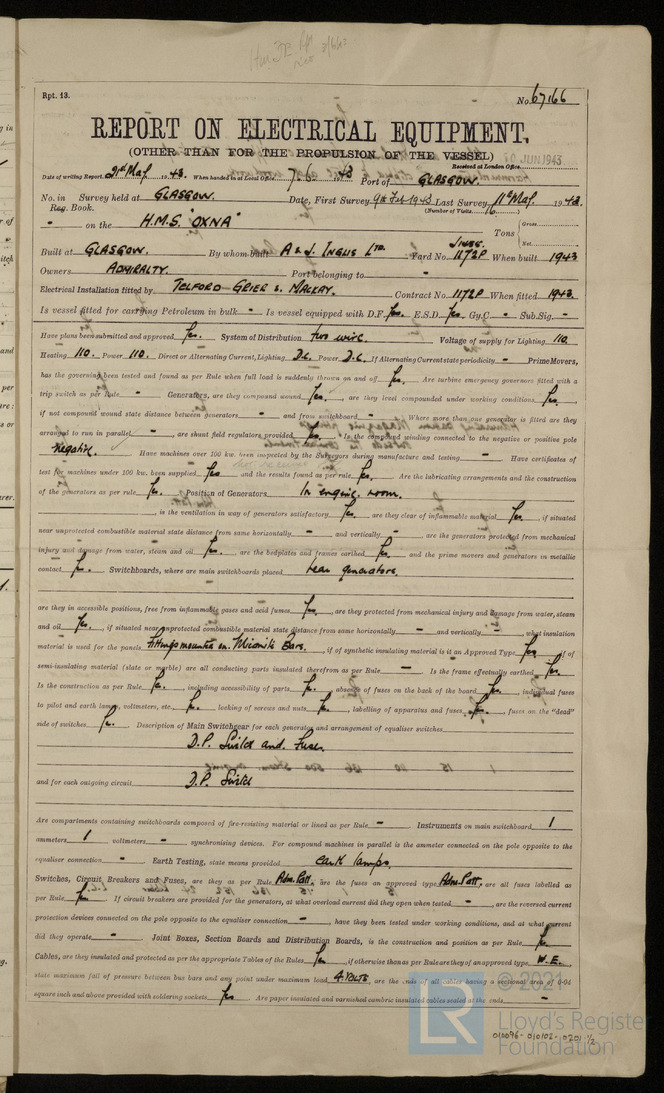 Rpt. 13.
No. 67166
REPORT ON ELECTRICAL EQUIPMENT.
(OTHER THAN FOR THE PROPULSION OF THE VESSEL)
Received at London Office
10 JUN 1943
Date of writing Report 21st May 1943. When handed in at Local Office 7.6. 1943 Port of GLASGOW.
No. in Survey held at GLASGOW. Date, First Survey 9th Feb 1943 Last Survey 11th May, 1943
Reg. Book. (Number of Visits 16 )
- on the H.M.S "OXNA" Tons { Gross
Net
Built at GLASGOW. By whom built A & J. INGLIS LTD. Yard No. 1172P When built 1943
Owners ADMIRALTY. Port belonging to -
Electrical Installation fitted by TELFORD GRIER & MACKAY. Contract No. 1172P When fitted 1943.
Is vessel fitted for carrying Petroleum in bulk - Is vessel equipped with D.F. Yes. E.S.D. Yes. Gy.C. - Sub.Sig. -
Have plans been submitted and approved Yes. System of Distribution two wire. Voltage of supply for Lighting 110.
Heating 110. Power 110. Direct or Alternating Current, Lighting D.C. Power D.C. If Alternating Current state periodicity - Prime Movers,
has the governing been tested and found as per Rule when full load is suddenly thrown on and off Yes. Are turbine emergency governors fitted with a
trip switch as per Rule - Generators, are they compound wound Yes. , are they level compounded under working conditions Yes. ,
if not compound wound state distance between generators - and from switchboard - Where more than one generator is fitted are they
arranged to run in parallel - , are shunt field regulators provided Yes. Is the compound winding connected to the negative or positive pole
Negative. Have machines over 100 kw. been inspected by the Surveyors during manufacture and testing - Have certificates of
test for machines under 100 kw. been supplied Yes and the results found as per rule Yes. Are the lubricating arrangements and the construction
of the generators as per rule Yes. Position of Generators In engine room.
, is the ventilation in way of generators satisfactory Yes. are they clear of inflammable material Yes. , if situated
near unprotected combustible material state distance from same horizontally - and vertically - , are the generators protected from mechanical
injury and damage from water, steam and oil Yes. , are the bedplates and frames earthed Yes. and the prime movers and generators in metallic
contact Yes. Switchboards, where are main switchboards placed near generators.
are they in accessible positions, free from inflammable gases and acid fumes Yes. , are they protected from mechanical injury and damage from water, steam
and oil Yes. , if situated near unprotected combustible material state distance from same horizontally - and vertically - , what insulation
material is used for the panels Fittings mounted on Micanite Bars. , if of synthetic insulating material is it an Approved Type Yes , if of
semi-insulating material (slate or marble) are all conducting parts insulated therefrom as per Rule - Is the frame effectually earthed Yes.
Is the construction as per Rule Yes. , including accessibility of parts Yes. absence of fuses on the back of the board Yes. , individual fuses
to pilot and earth lamps, voltmeters, etc. Yes. locking of screws and nuts Yes. , labelling of apparatus and fuses Yes. , fuses on the "dead"
side of switches Yes. Description of Main Switchgear for each generator and arrangement of equaliser switches
D.P. Switch and Fuses
and for each outgoing circuit D.P. Switch
Are compartments containing switchboards composed of fire-resisting material or lined as per Rule - Instruments on main switchboard 1
ammeters 1 voltmeters - synchronising devices. For compound machines in parallel is the ammeter connected on the pole opposite to the
equaliser connection - Earth Testing, state means provided earth lamps.
Switches, Circuit Breakers and Fuses, are they as per Rule Adm. Patt. , are the fuses an approved type Adm. Patt. , are all fuses labelled as
per Rule Yes. If circuit breakers are provided for the generators, at what overload current did they open when tested - , are the reversed current
protection devices connected on the pole opposite to the equaliser connection - , have they been tested under working conditions, and at what current
did they operate - Joint Boxes, Section Boards and Distribution Boards, is the construction and position as per Rule Yes.
Cables, are they insulated and protected as per the appropriate Tables of the Rules Yes , if otherwise than as per Rule are they of an approved type W.E.,
state maximum fall of pressure between bus bars and any point under maximum load 4 VOLTS , are the ends of all cables having a sectional area of 0·04
square inch and above provided with soldering sockets Yes Are paper insulated and varnished cambric insulated cables sealed at the ends -
© 2021
LR
Lloyd's Register
Foundation
010096-010102-0201 1/2